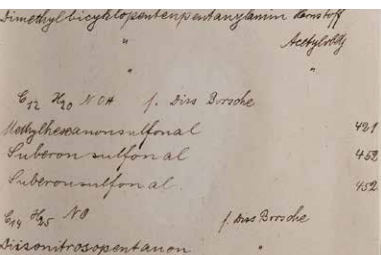 Dimethylbicyklopentenpentanylamin Harnstoff
" Acetylvbdg
" "
C12 H20 NOH f. Diss Borsche
Methylhexanonsulfonal 421
Suberonsulfonal 452
Suberonsulfonal 452
C14 H25 NO f. Diss Borsche
Diisonitrosopentanon "